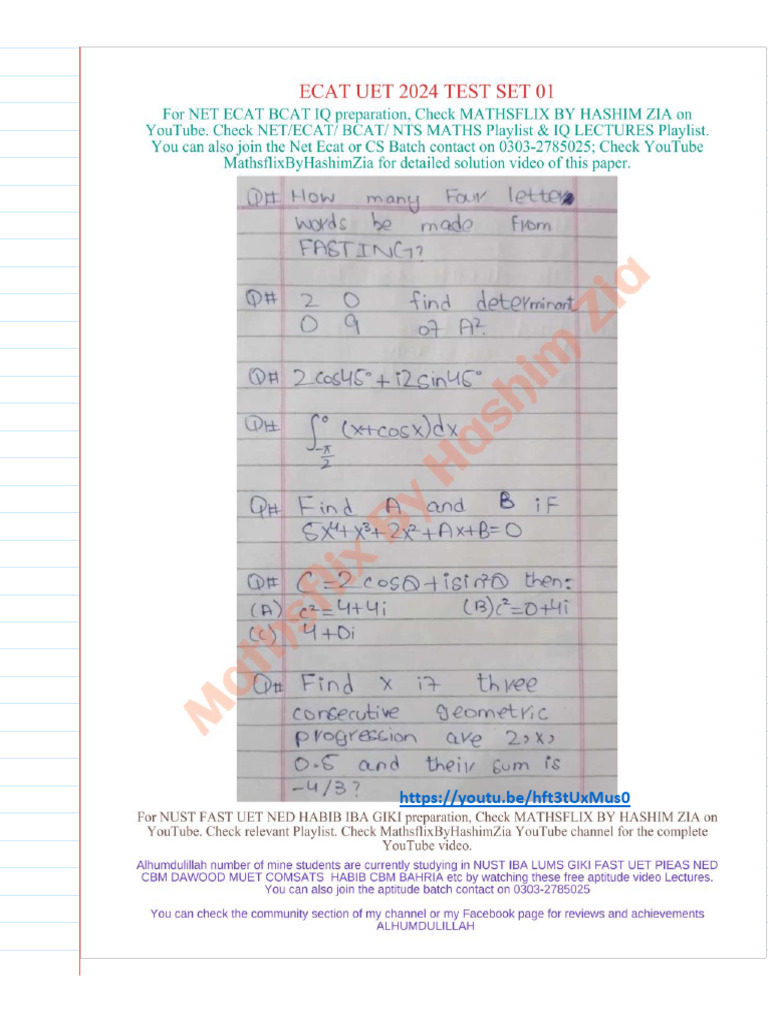 ECAT UET 2024 TEST SET 01
For NET ECAT BCAT IQ preparation, Check MATHSFLIX BY HASHIM ZIA on
YouTube. Check NET/ECAT/ BCAT/ NTS MATHS Playlist & IQ LECTURES Playlist.
You can also join the Net Ecat or CS Batch contact on 0303-2785025; Check YouTube
MathsflixByHashimZia for detailed solution video of this paper.
Q# How many Four letter
words be made from
FASTING?
Q# 2 0 find determinant
0 9 of A².
Q# 2cos45° + i2sin45°
Q# ∫₋π/₂⁰ (x+cosx)dx
Q# Find A and B if
5x⁴+x³+2x²+Ax+B=0
Q# C=2cosθ+isin²θ then:
(A) c²=4+4i (B) c²=0+4i
(C) 4+0i
Q# Find x if three
consecutive geometric
progression are 2,x,
0.5 and their sum is
-4/3?
Mathsflix By Hashim Zia
https://youtu.be/hft3tUxMus0
For NUST FAST UET NED HABIB IBA GIKI preparation, Check MATHSFLIX BY HASHIM ZIA on
YouTube. Check relevant Playlist. Check MathsflixByHashimZia YouTube channel for the complete
YouTube video.
Alhumdulillah number of mine students are currently studying in NUST IBA LUMS GIKI FAST UET PIEAS NED
CBM DAWOOD MUET COMSATS HABIB CBM BAHRIA etc by watching these free aptitude video Lectures.
You can also join the aptitude batch contact on 0303-2785025
You can check the community section of my channel or my Facebook page for reviews and achievements
ALHUMDULILLAH